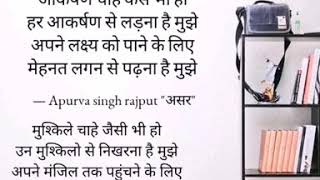 आकर्षण चाहे कैसे भी हो
हर आकर्षण से लड़ना है मुझे
अपने लक्ष्य को पाने के लिए
मेहनत लगन से पढ़ना है मुझे
— Apurva singh rajput "असर"
मुश्किले चाहे जैसी भी हो
उन मुश्किलो से निखरना है मुझे
अपने मंजिल तक पहुंचने के लिए